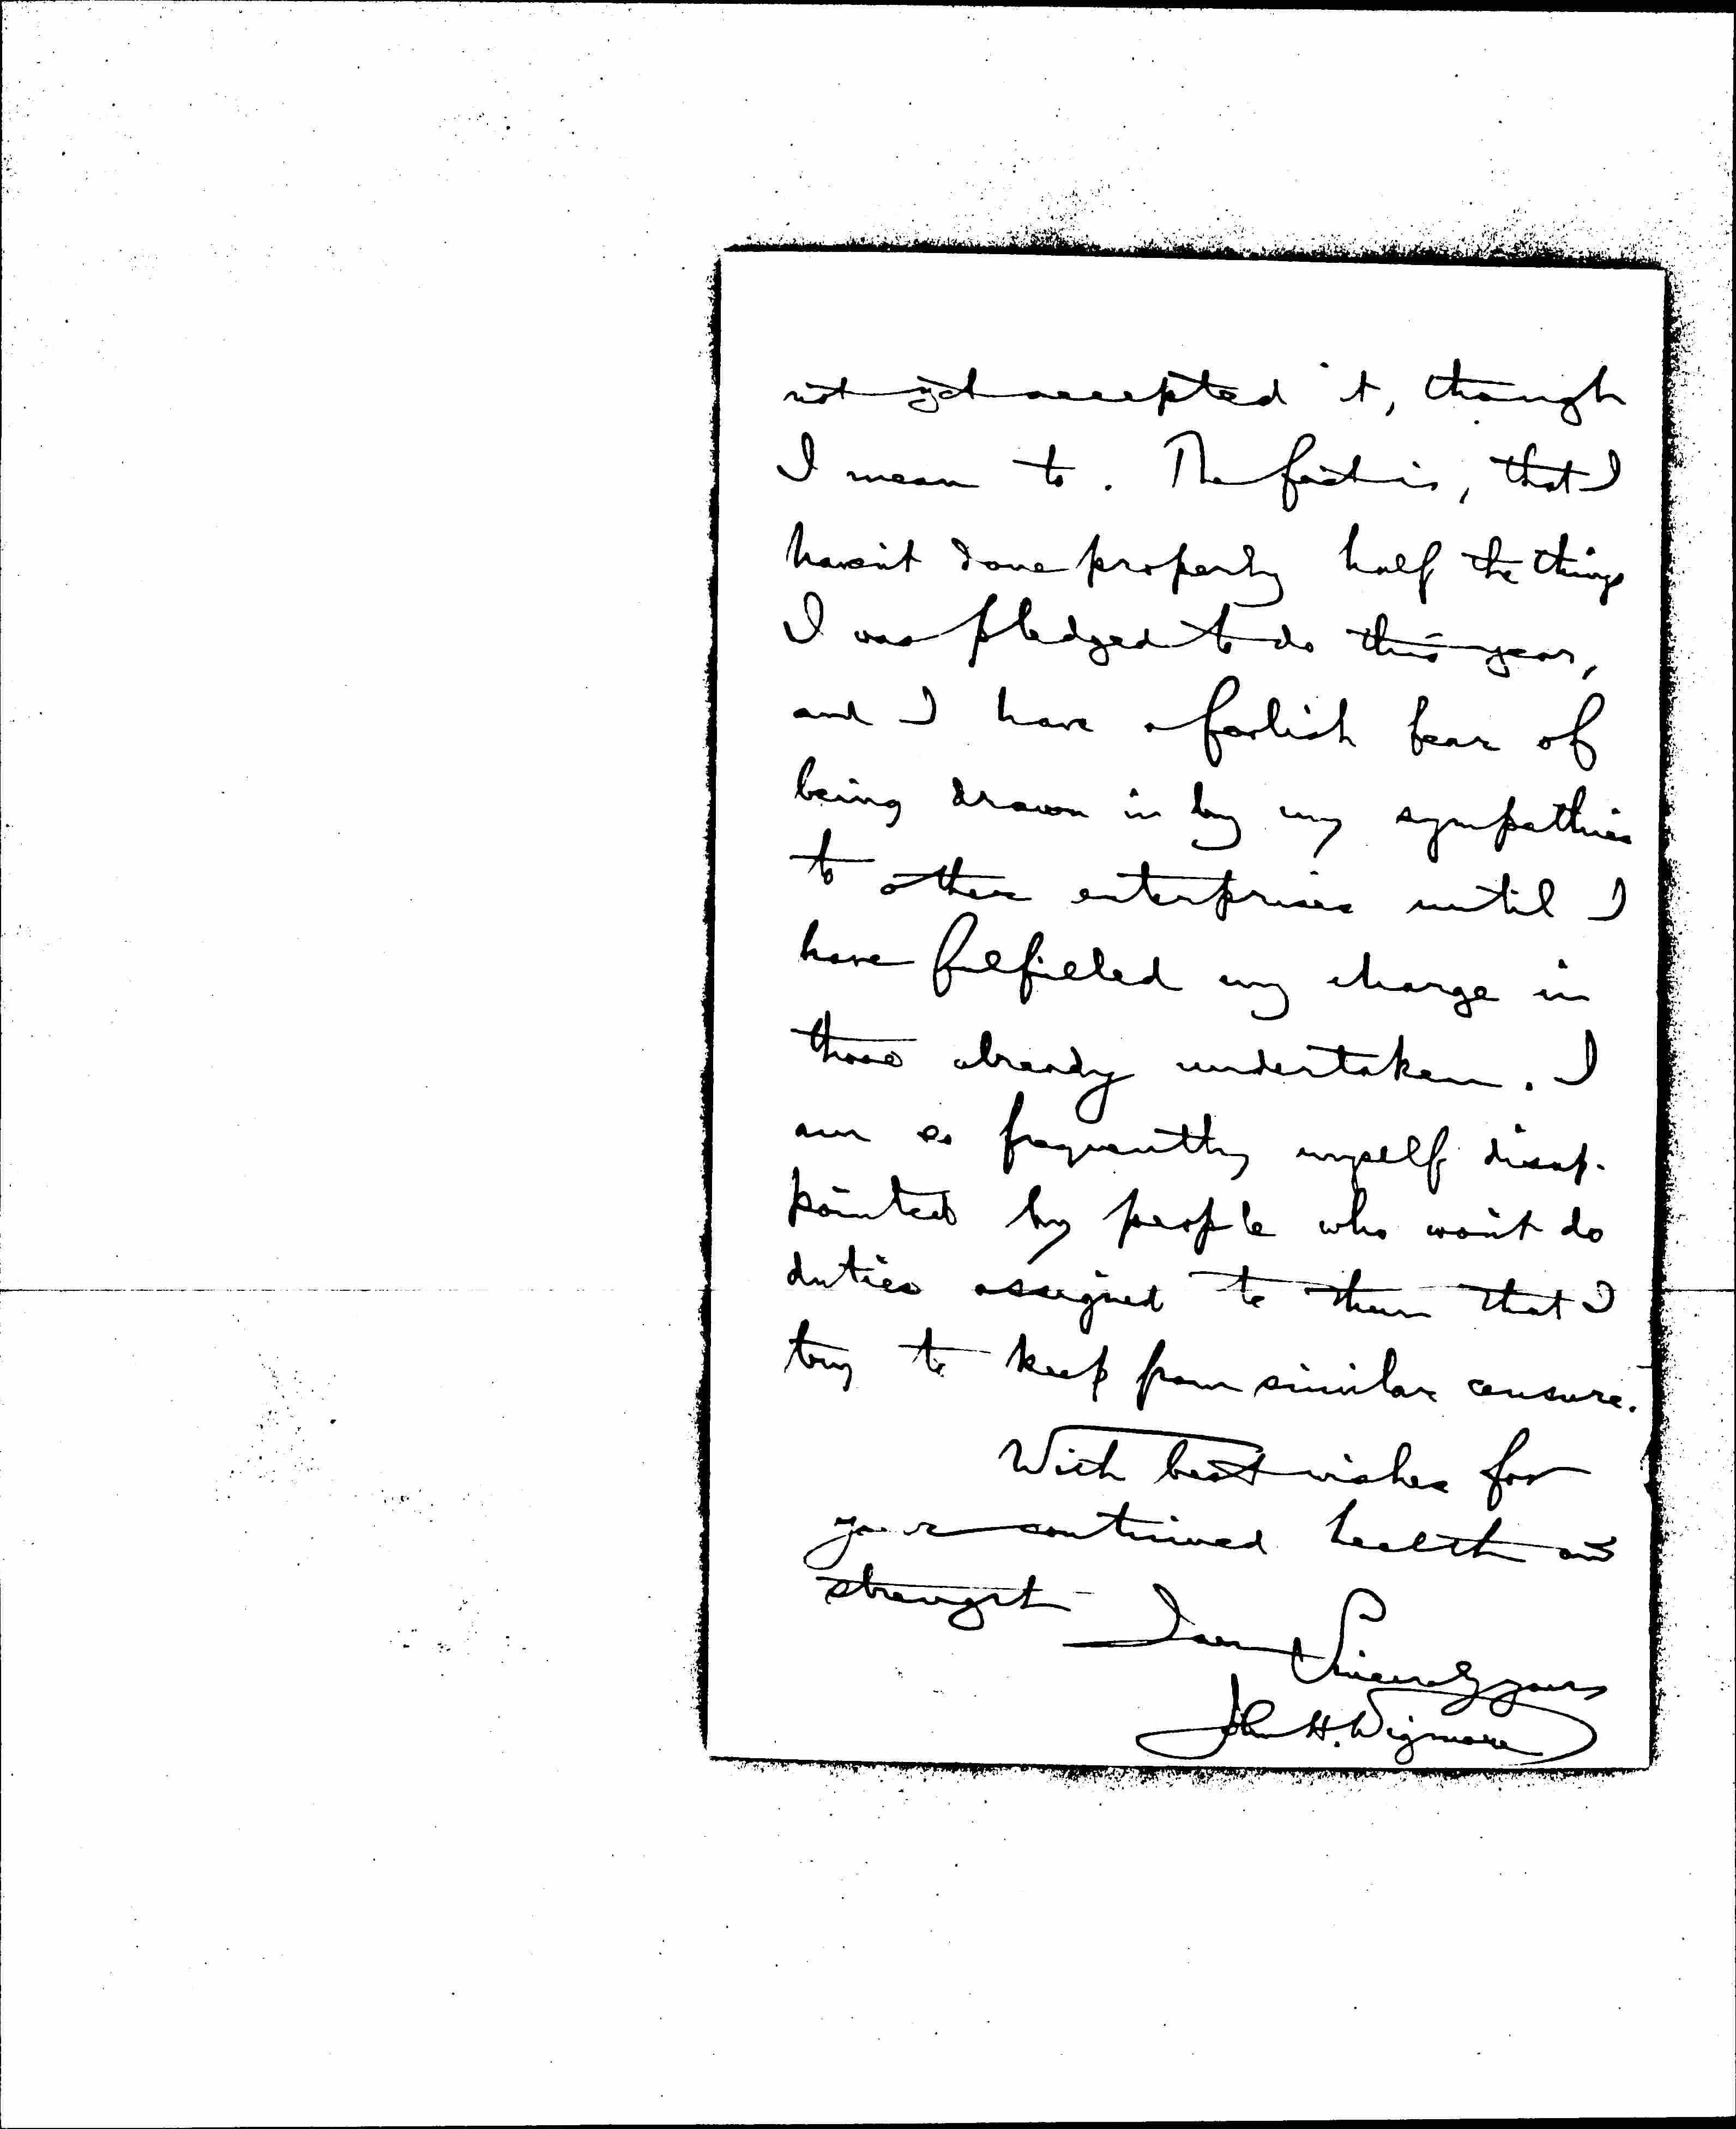 not yet accepted it, though
I mean to. The fact is, that I
haven't done properly half the things
I was pledged to do this year,
and I have a foolish fear of
being drawn in by my sympathies
to other enterprises until I
have fulfilled my charge in
those already undertaken. I
am so frequently myself disap-
pointed by people who won't do
duties assigned to them that I
try to keep from similar censure.
With best wishes for
your continued health and
strength I am Sincerely yours
John H. Wigmore